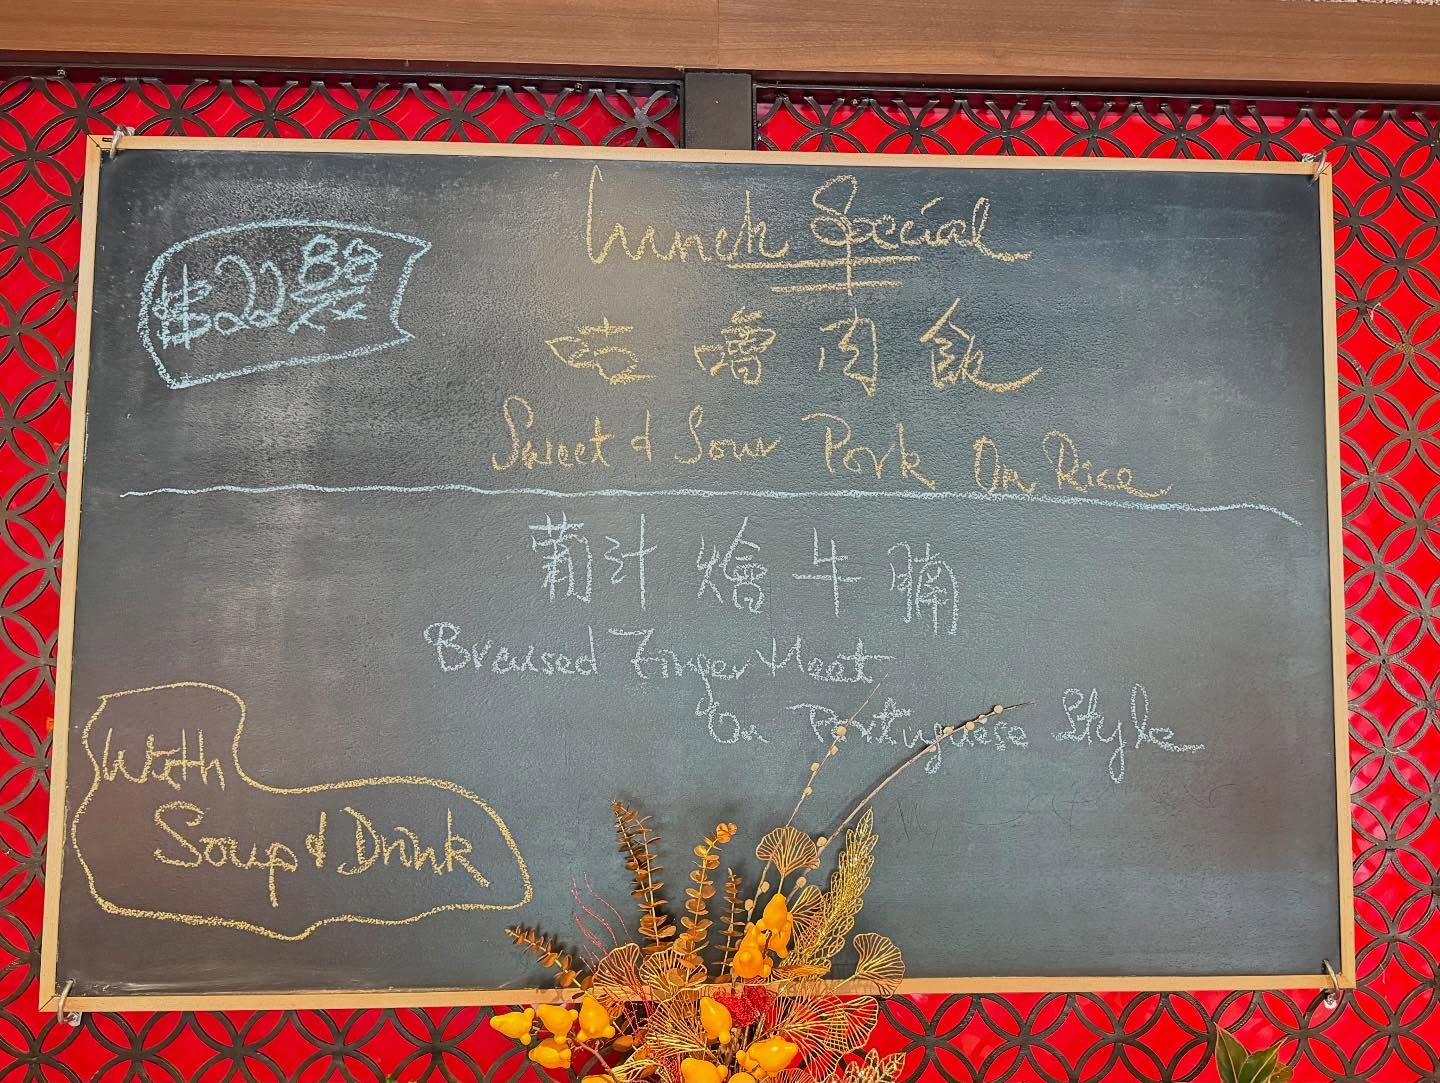 Lunch Special
$22 88
咕嚕肉飯
Sweet & Sour Pork On Rice
葡汁燴牛腩
Breused Finger Meat
On Portuguese Style
With
Soup & Drink